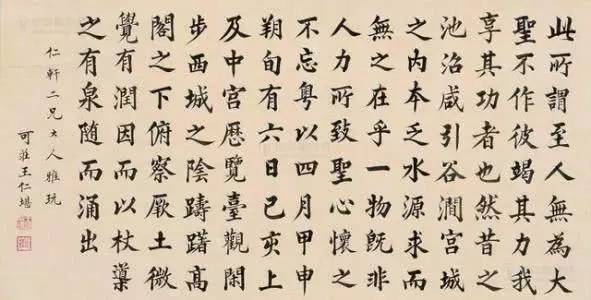 此所謂至人無為大
聖不作彼竭其力我
享其功者也然昔之
池沼咸引谷澗宮城
之內本乏水源求而
無之在乎一物旣非
人力所致聖心懷之
不忘粵以四月甲申
朔旬有六日己亥上
及中宮歷覽臺觀閑
步西城之陰躊躇高
閣之下俯察厥土微
覺有潤因而以杖導
之有泉隨而涌出
仁軒二兄大人雅玩
可莊王仁堪